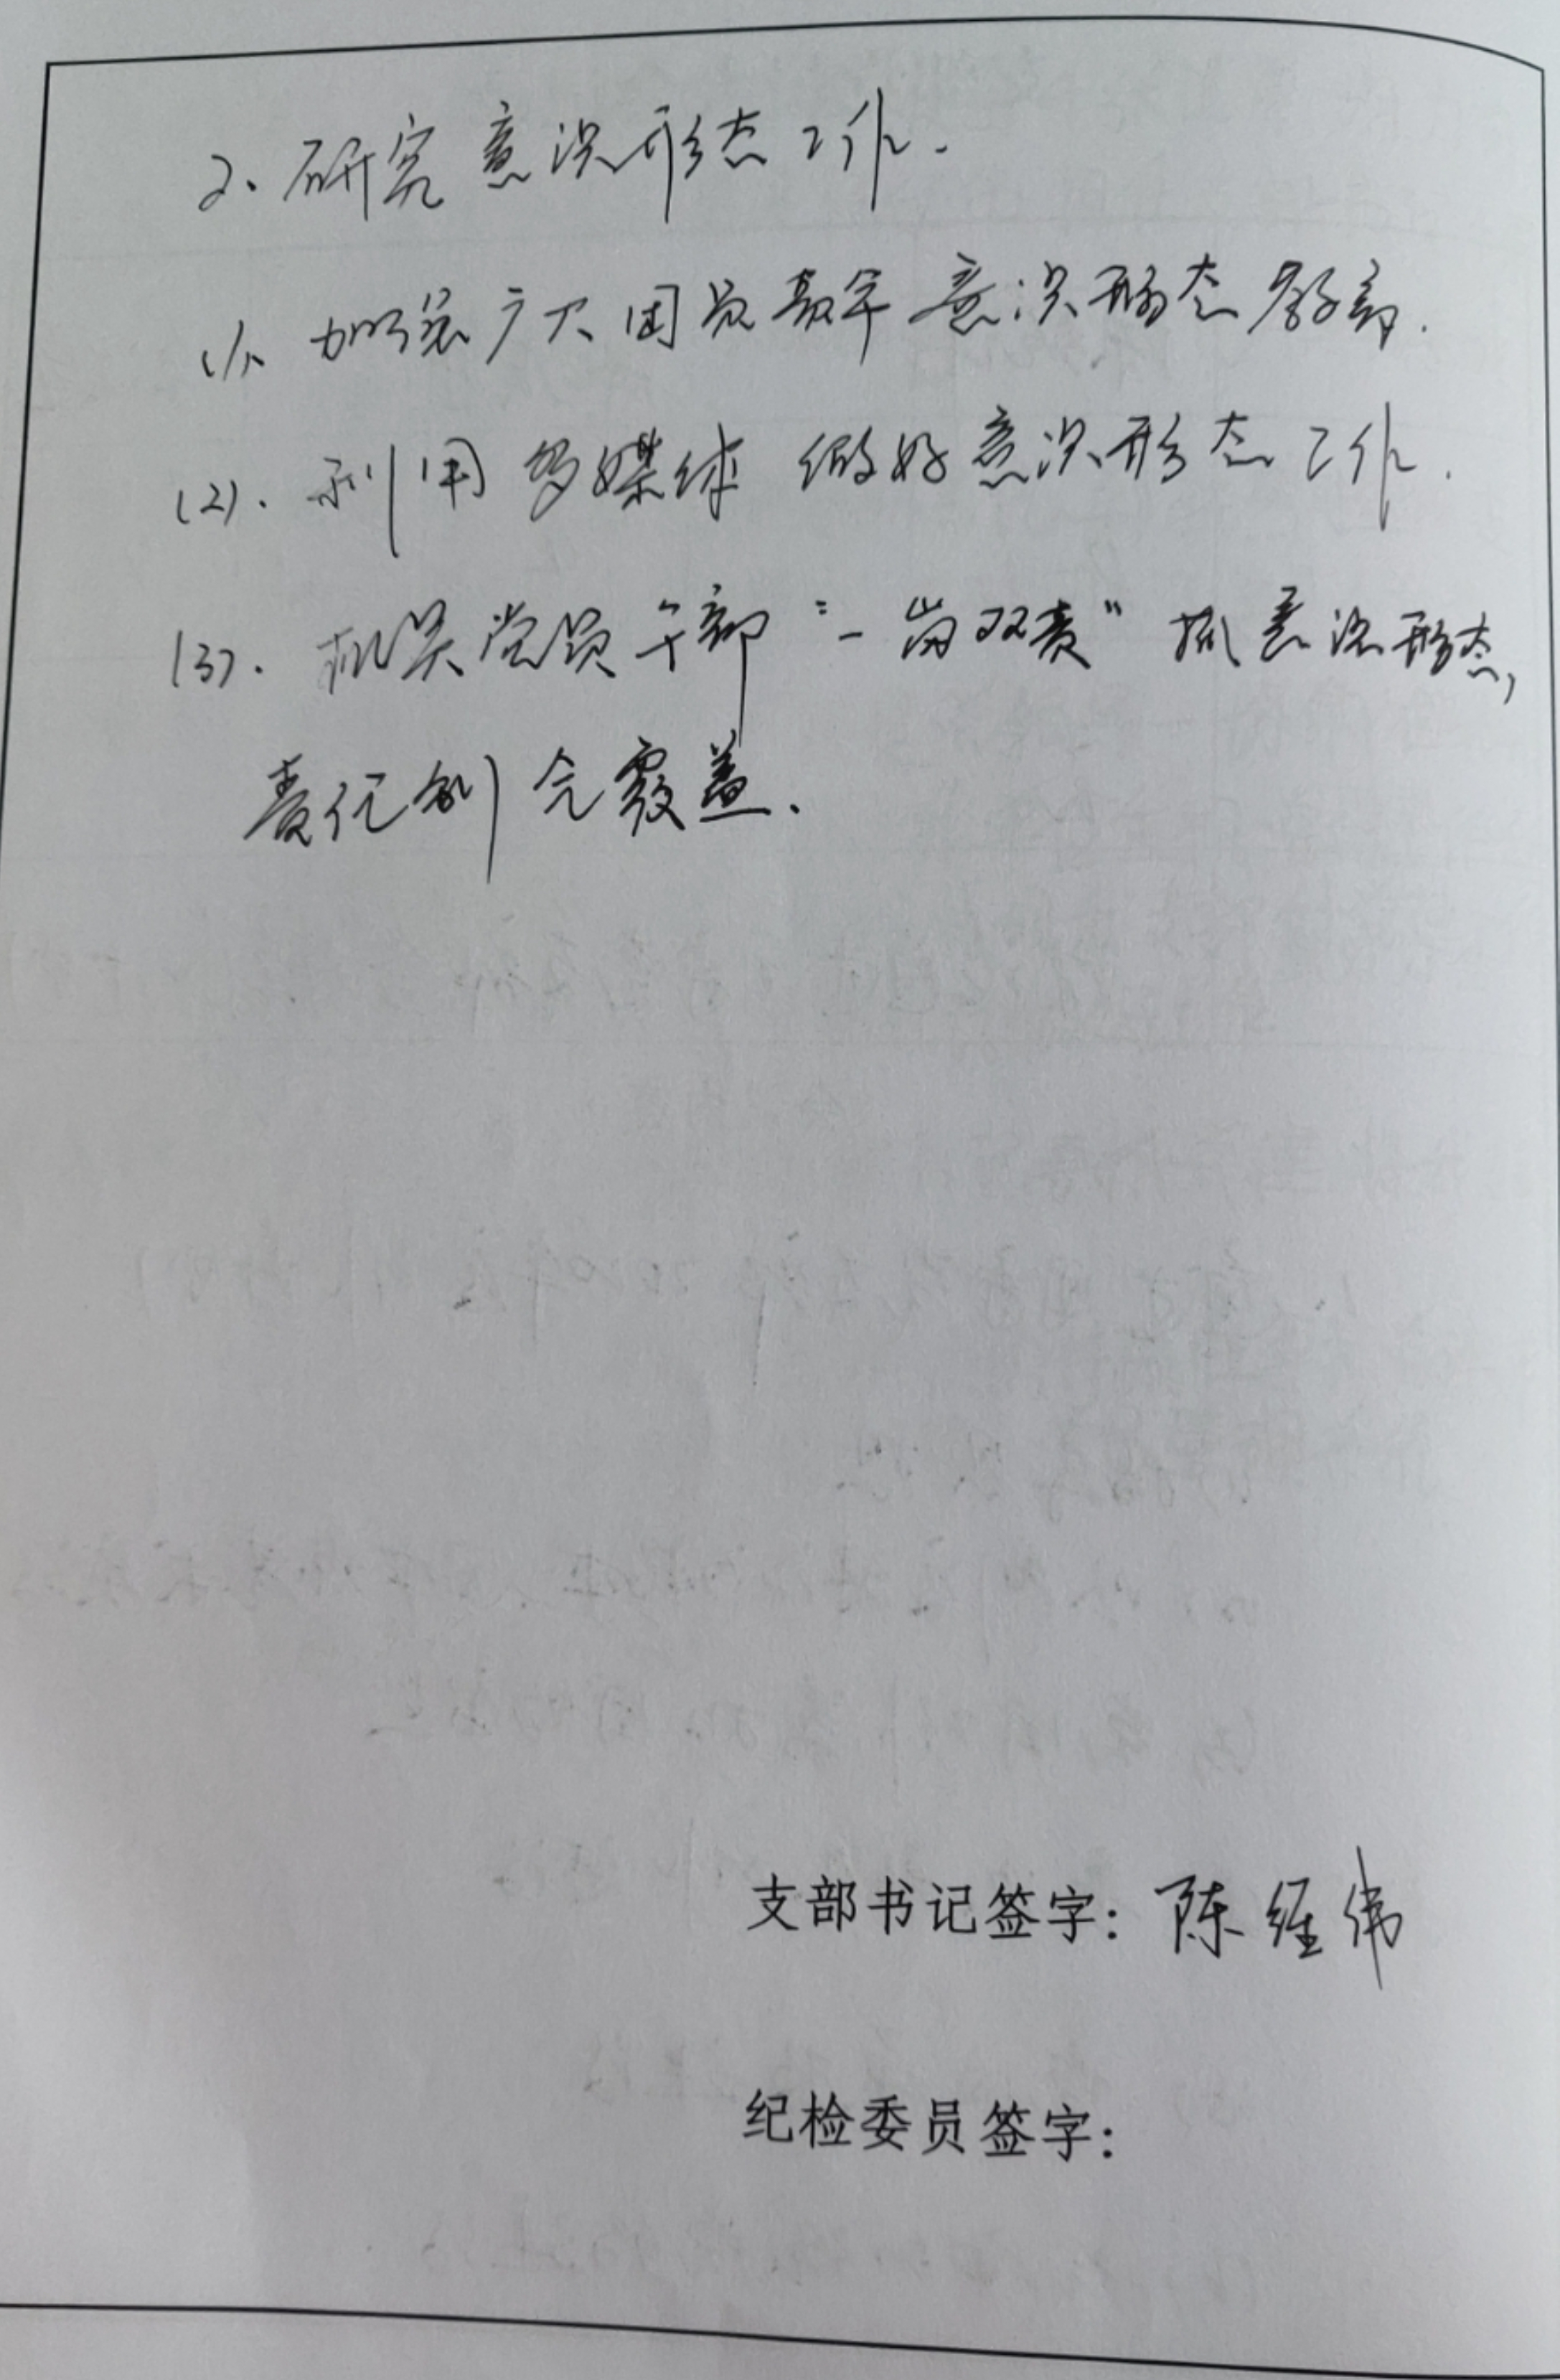 2、研究意识形态工作.
(1)、加强广大团员青年意识形态教育.
(2).利用多媒体做好意识形态工作.
(3).机关党员干部“一岗双责”抓意识形态,
责任制全覆盖.
支部书记签字：陈经伟
纪检委员签字：